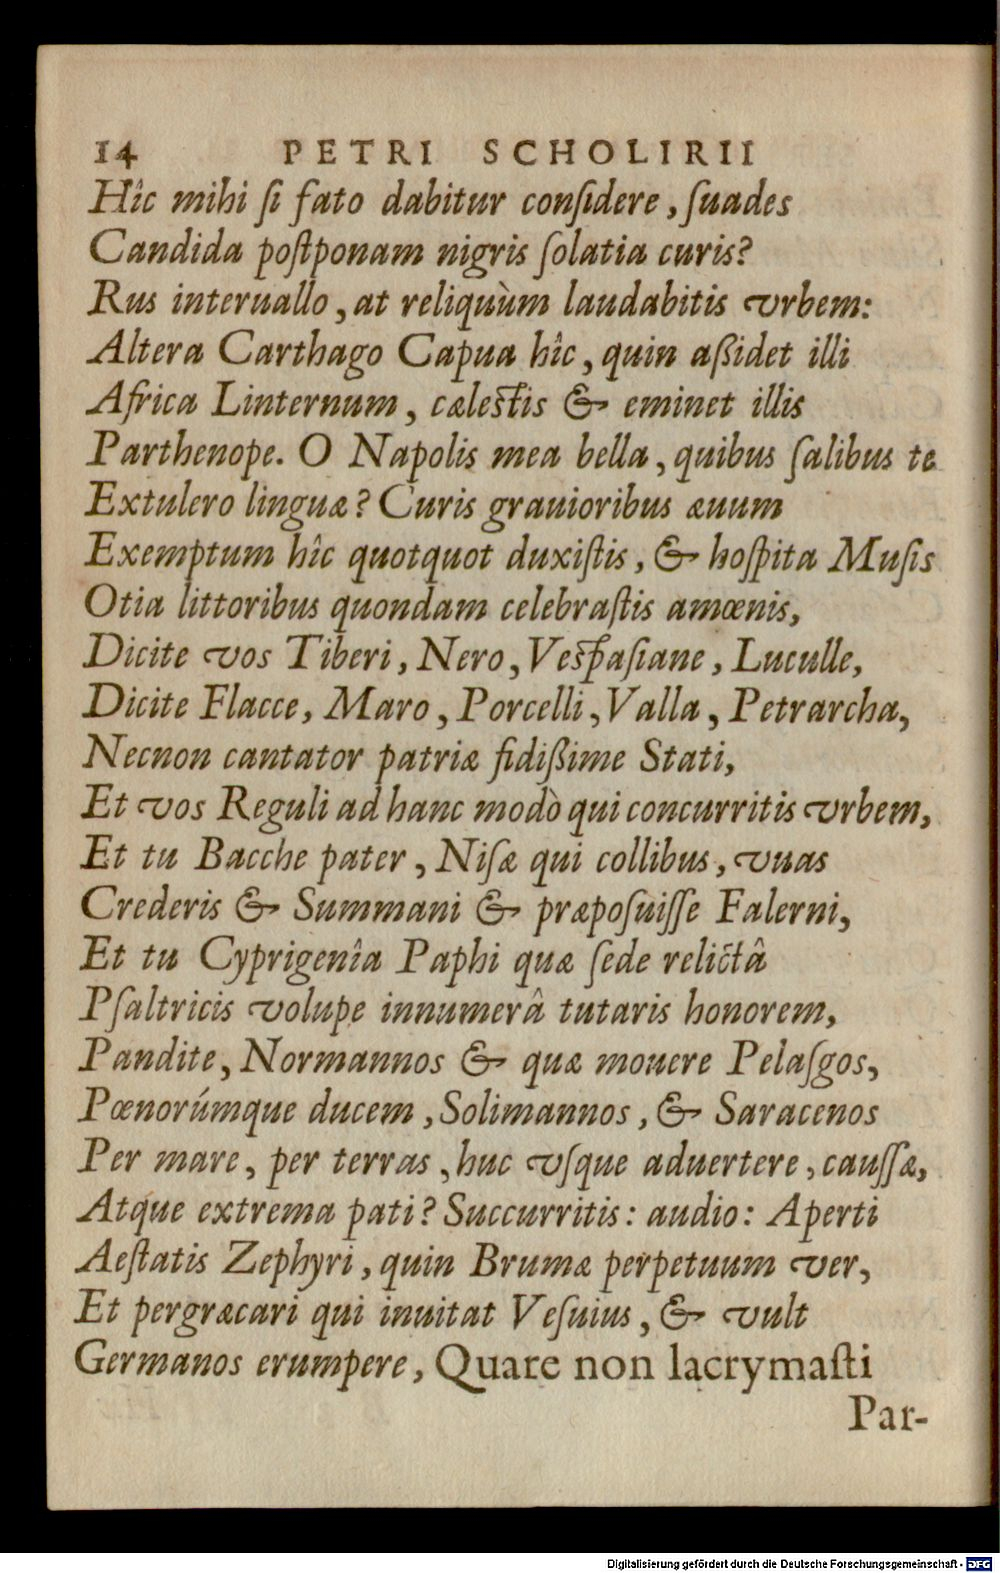 14 PETRI SCHOLIRII
Hîc mihi ſi fato dabitur conſidere, ſuades
Candida poſtponam nigris ſolatia curis?
Rus interuallo, at reliquùm laudabitis vrbem:
Altera Carthago Capua hîc, quin aßidet illi
Africa Linternum, cæleſtis & eminet illis
Parthenope. O Napolis mea bella, quibus ſalibus te
Extulero linguæ? Curis grauioribus æuum
Exemptum hîc quotquot duxiſtis, & hoſpita Muſis
Otia littoribus quondam celebraſtis amœnis,
Dicite vos Tiberi, Nero, Veſpaſiane, Luculle,
Dicite Flacce, Maro, Porcelli, Valla, Petrarcha,
Necnon cantator patriæ fidißime Stati,
Et vos Reguli ad hanc modò qui concurritis vrbem,
Et tu Bacche pater, Niſæ qui collibus, vuas
Crederis & Summani & præpoſuiſſe Falerni,
Et tu Cyprigenîa Paphi quæ ſede relictâ
Pſaltricis volupe innumerâ tutaris honorem,
Pandite, Normannos & quæ mouere Pelaſgos,
Pœnorúmque ducem, Solimannos, & Saracenos
Per mare, per terras, huc vſque aduertere, cauſſæ,
Atque extrema pati? Succurritis: audio: Aperti
Aeſtatis Zephyri, quin Brumæ perpetuum ver,
Et pergræcari qui inuitat Veſuius, & vult
Germanos erumpere, Quare non lacrymaſti
Par-
Digitalisierung gefördert durch die Deutsche Forschungsgemeinschaft - DFG